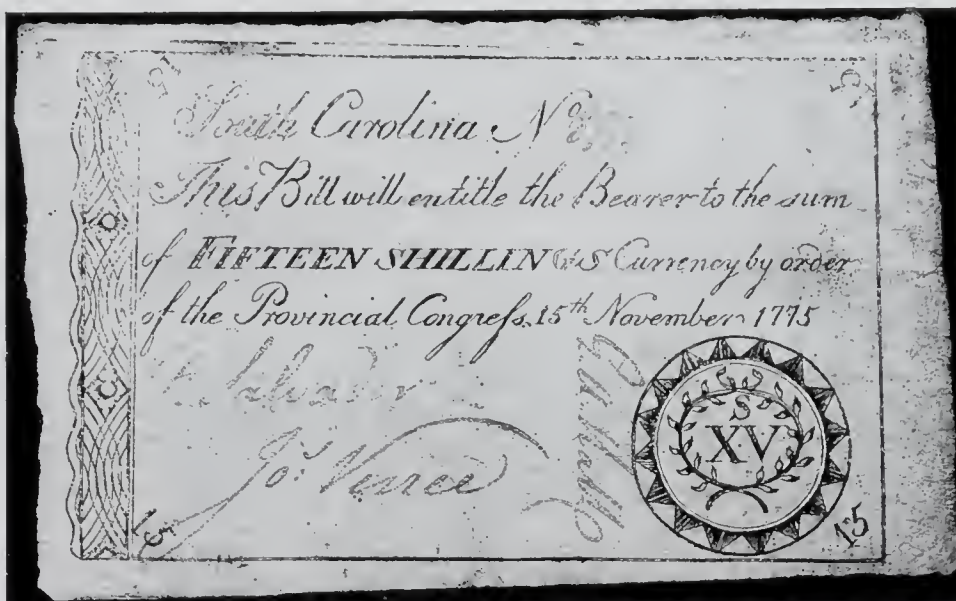 15 15
South Carolina No.
This Bill will entitle the Bearer to the sum
of FIFTEEN SHILLINGS Currency by order
of the Provincial Congreſs, 15th November 1775
S
XV
Jo.
15 15